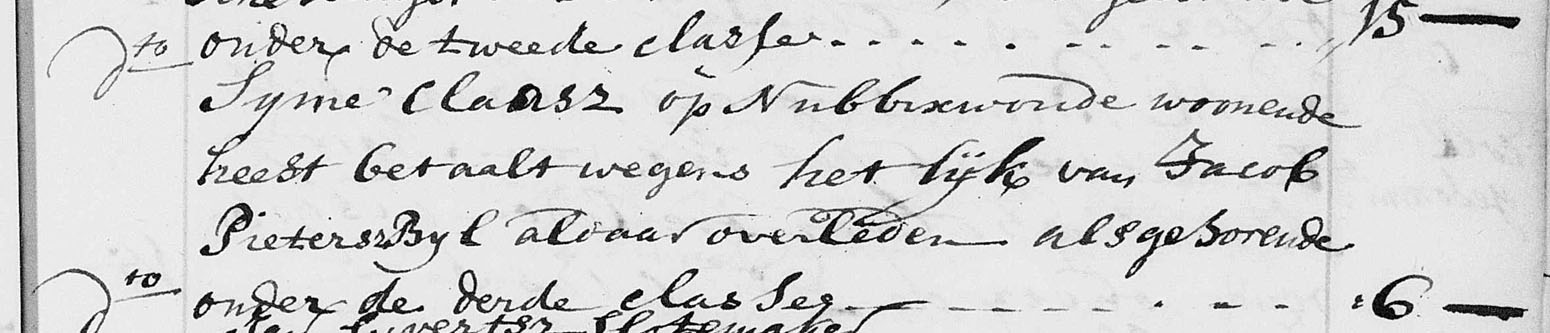 onder de tweede classe - - - - - - - - - 15 —
dto
Syme Claasz op Nubbixwoude woonende
heeft betaalt wegens het lijk van Jacob
Pietersz Byl aldaar overleden als gehorende
dto onder de derde classe - - - - - - - - :6 —
Sijvertsz Slotemaker